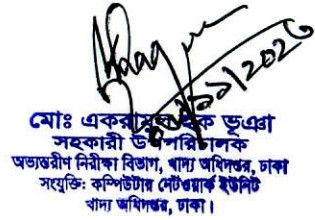 মোঃ একরামুল হক ভূঞা
সহকারী উপপরিচালক
অভ্যন্তরীণ নিরীক্ষা বিভাগ, খাদ্য অধিদপ্তর, ঢাকা
সংযুক্তি: কম্পিউটার নেটওয়ার্ক ইউনিট
খাদ্য অধিদপ্তর, ঢাকা।